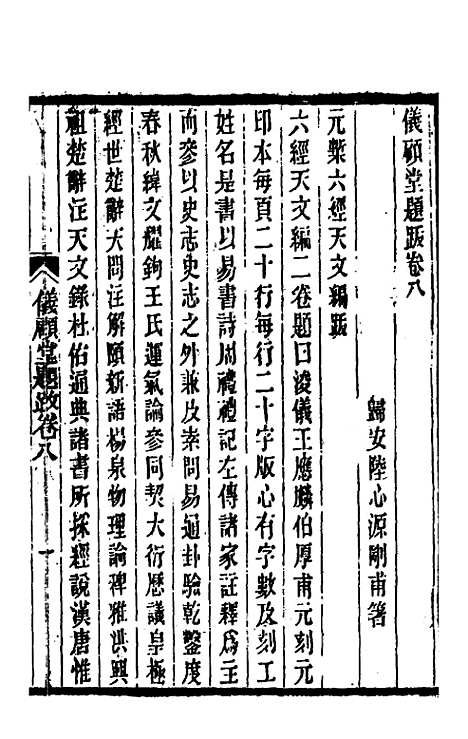 儀顧堂題跋卷八
歸安陸心源剛甫箸
元槧六經天文編跋
六經天文編二卷題曰浚儀王應麟伯厚甫元刻元
印本每頁二十行每行二十字版心有字數及刻工
姓名是書以易書詩周禮禮記左傳諸家註釋爲主
而參以史志史志之外兼及素問易通卦驗乾鑿度
春秋緯文耀鉤王氏運氣論參同契大衍歷議皇極
經世楚辭天問注解頤新語楊泉物理論埤雅洪興
祖楚辭注天文錄杜佑通典諸書所採經說漢唐惟
儀顧堂題跋卷八
一